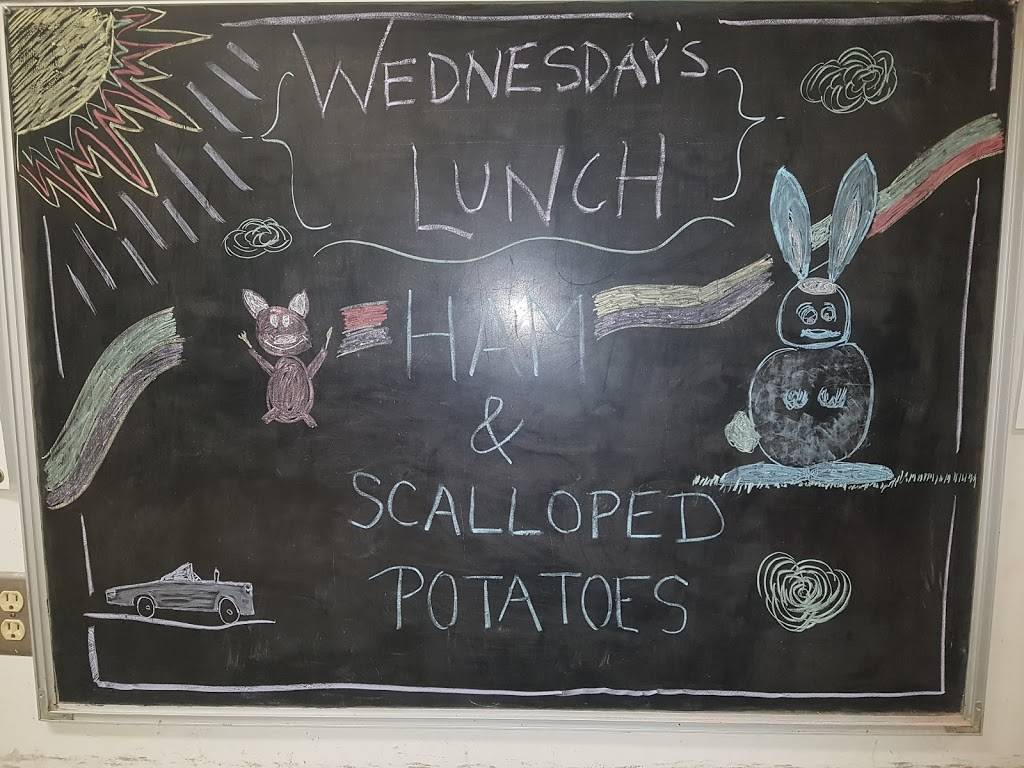 WEDNESDAY'S
LUNCH
HAM
&
SCALLOPED
POTATOES